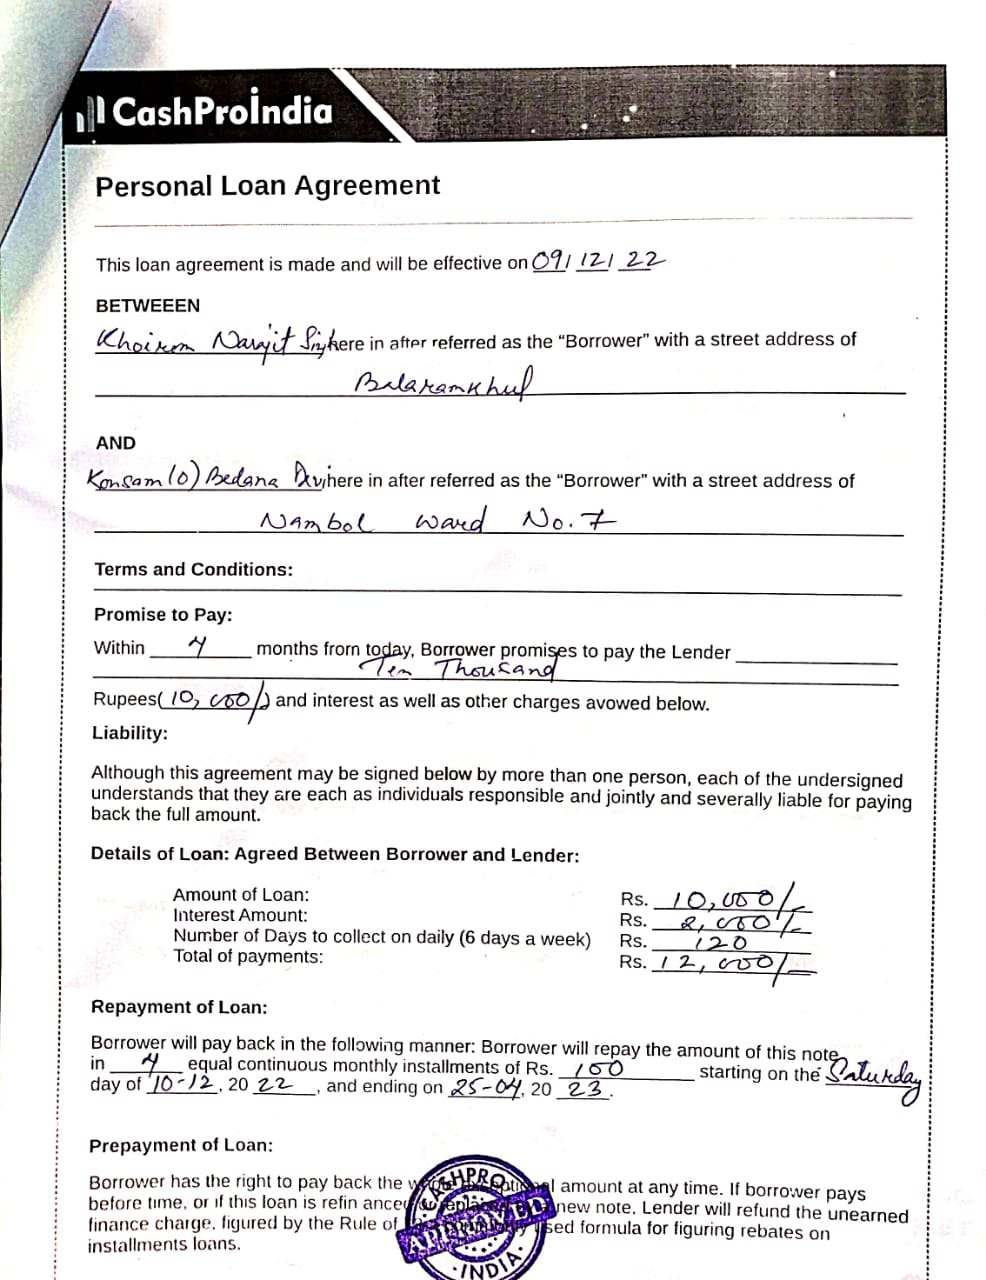 CashProIndia
Personal Loan Agreement
This loan agreement is made and will be effective on 09/ 12/ 22
BETWEEEN
Khoirom Narajit Singh here in after referred as the “Borrower” with a street address of
Balaramkhul
AND
Konsam (O) Bedana Devi here in after referred as the “Borrower” with a street address of
Nambol Ward No. 7
Terms and Conditions:
Promise to Pay:
Within 4 months from today, Borrower promises to pay the Lender
Ten Thousand
Rupees( 10,000/-) and interest as well as other charges avowed below.
Liability:
Although this agreement may be signed below by more than one person, each of the undersigned
understands that they are each as individuals responsible and jointly and severally liable for paying
back the full amount.
Details of Loan: Agreed Between Borrower and Lender:
Amount of Loan: Rs. 10,000/-
Interest Amount: Rs. 2,000/-
Number of Days to collect on daily (6 days a week) Rs. 120
Total of payments: Rs. 12,000/-
Repayment of Loan:
Borrower will pay back in the following manner: Borrower will repay the amount of this note
in 4 equal continuous monthly installments of Rs. 100 starting on the Saturday
day of 10-12, 20 22, and ending on 25-04, 20 23.
Prepayment of Loan:
Borrower has the right to pay back the amount at any time. If borrower pays
before time, or if this loan is refinanced new note, Lender will refund the unearned
finance charge, figured by the Rule of used formula for figuring rebates on
installments loans.
CASHPRO
APPROVED
INDIA